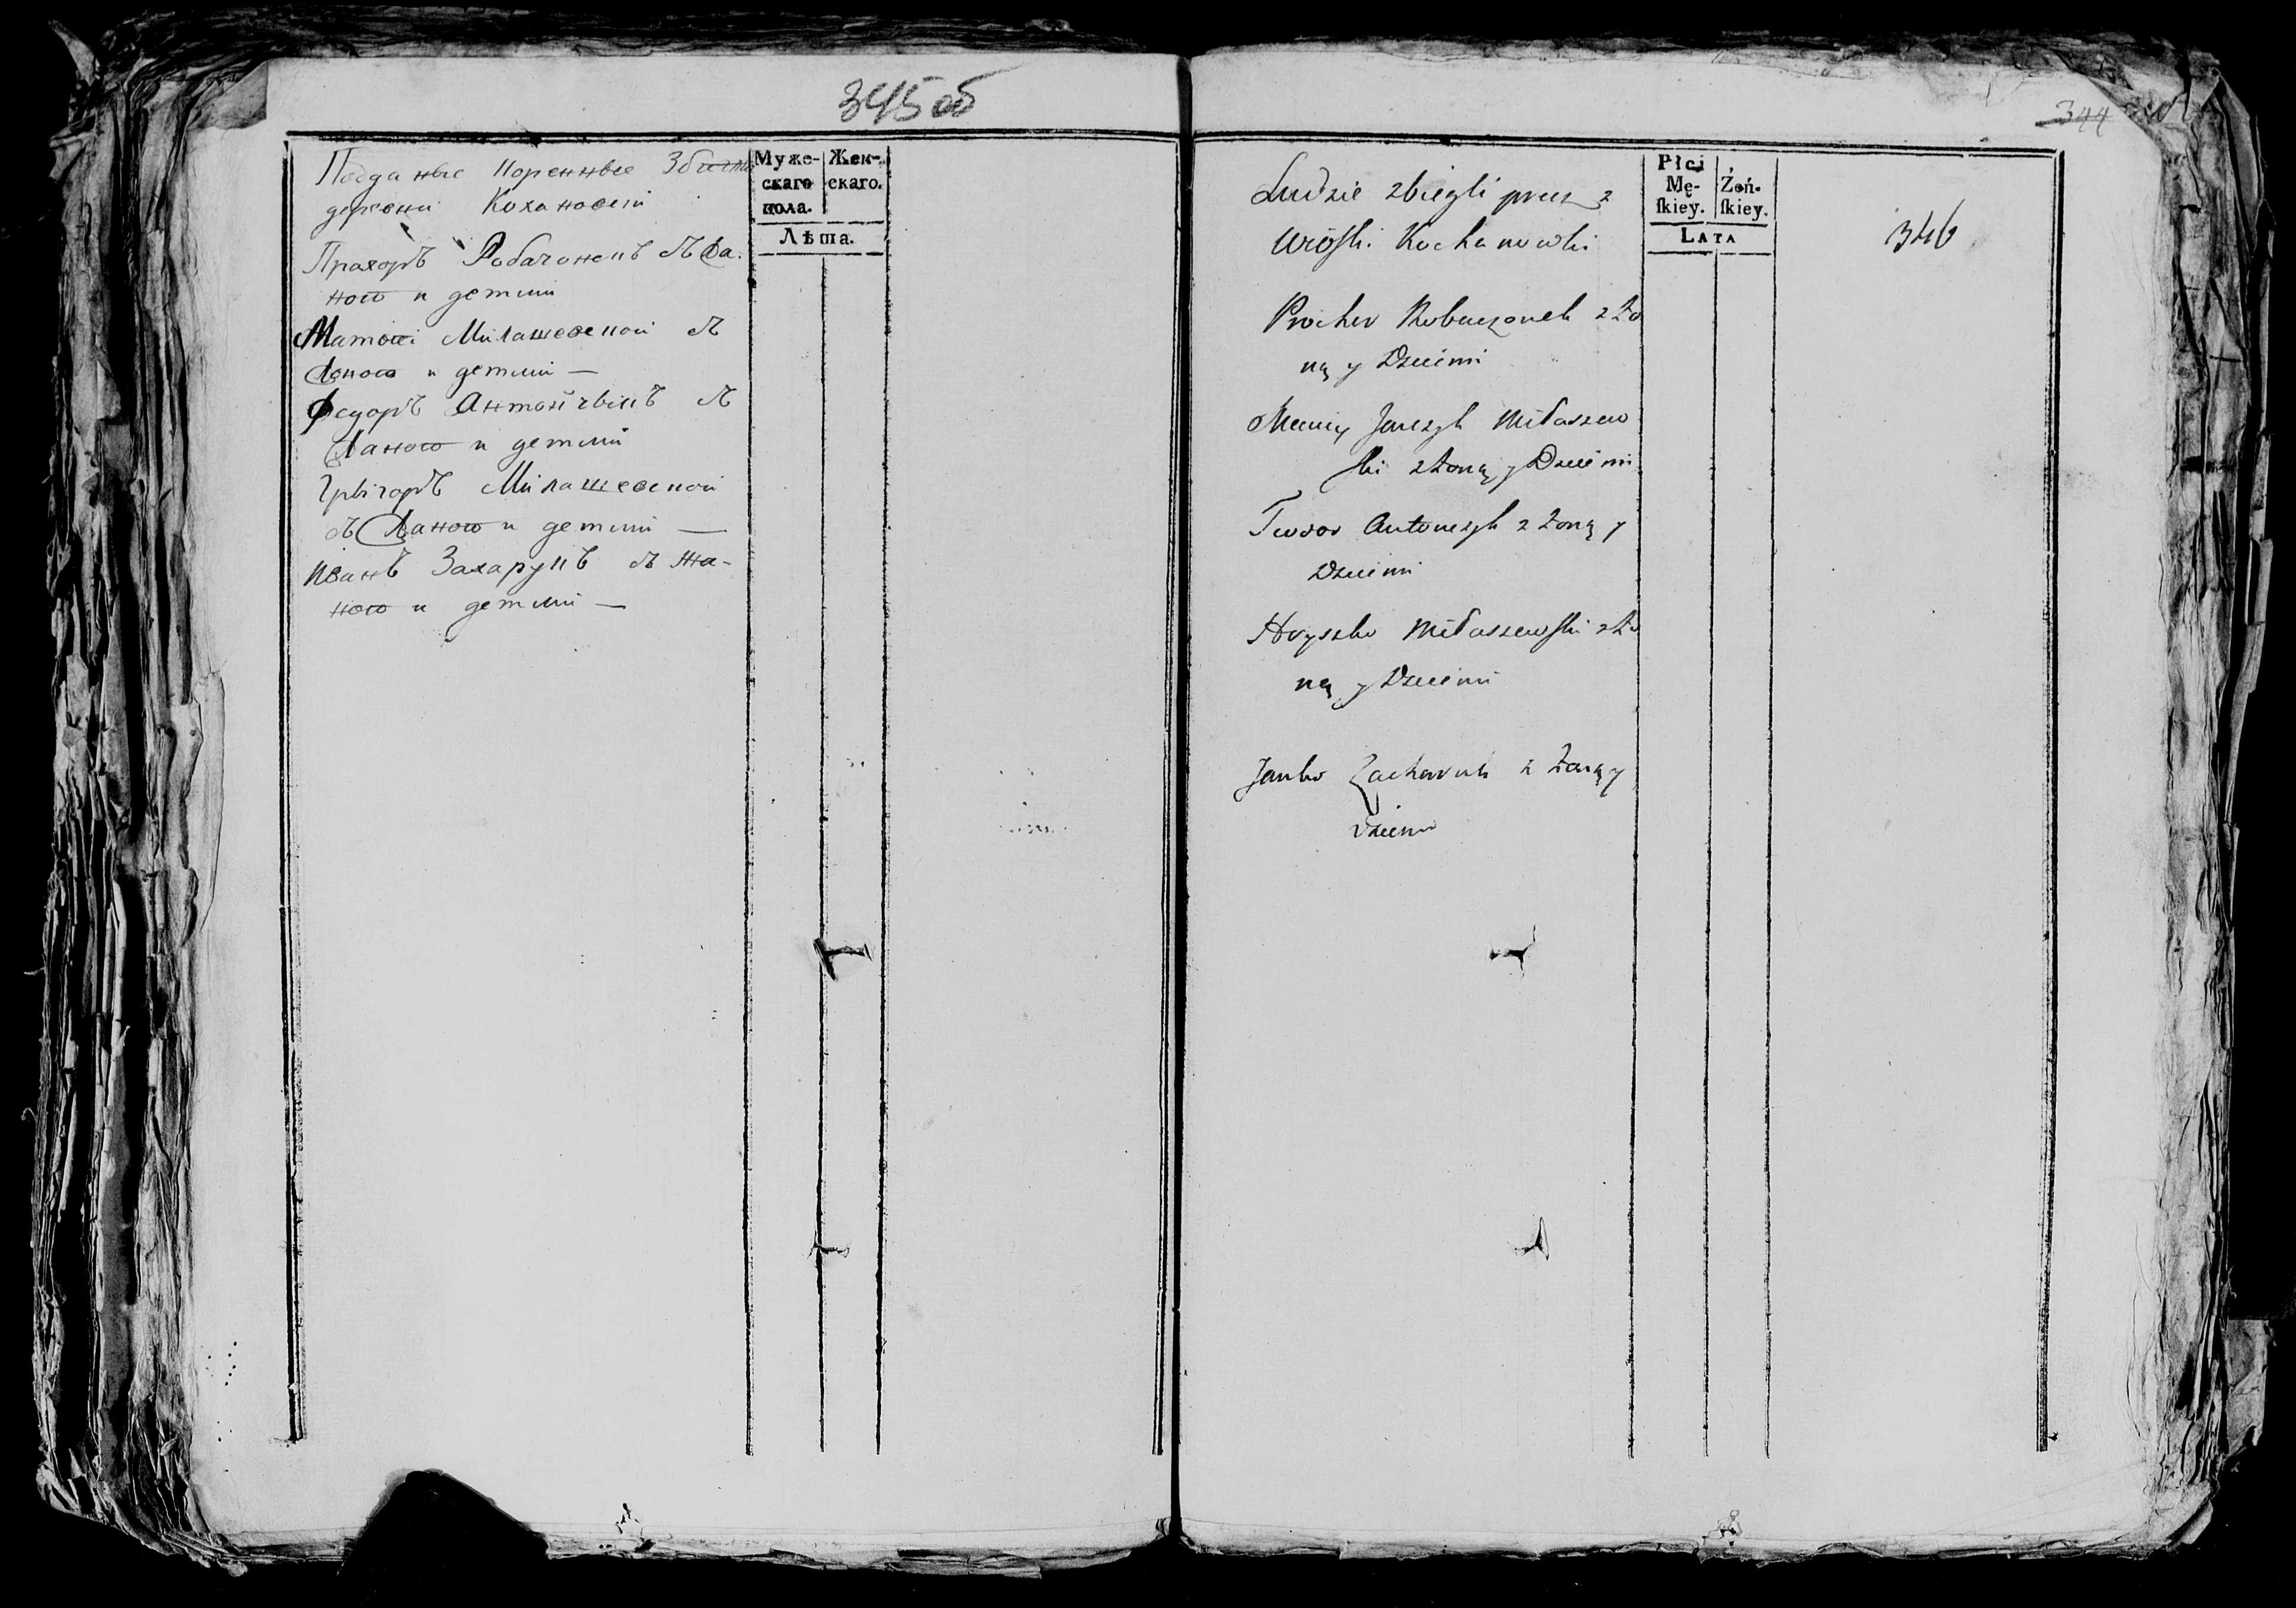 345 об
Подданые коренные Збигли
деревни Кохановки
Прахоръ Рабачонокъ з Жа-
ною и детми
Матвеі Милашевской з
Жоною и детми —
Федоръ Антончыкъ з
Жаною и детми
Грыгоръ Милашевской
з Жаною и детми —
Иванъ Захарукъ з жа-
ною и детми —
Муже-
скаго
пола.
Жен-
скаго.
Лѣта.
344
346
Ludzie zbiegli precz z
wiośki Kochanowki
Prochor Robaczonek z żo
ną y Dziećmi
Janczyk Miłaszew
ski z żoną y Dziećmi
Fiodor Antonczyk z żoną y
Dziećmi
Hryszko Miłaszewski z żo
ną y Dziećmi
Janko Zacharuk z żoną y
Dziećmi
Płci
Mę-
skiey.
Żeń-
skiey.
LATA